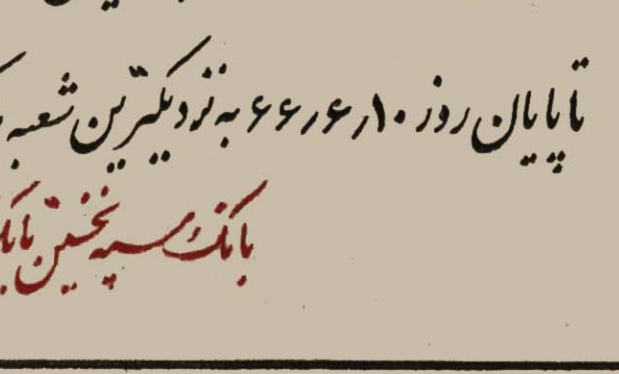 تا پایان روز ۶۶٫۶٫۱۰ به نزدیکترین شعبه
بانک سپه نخستین بانک